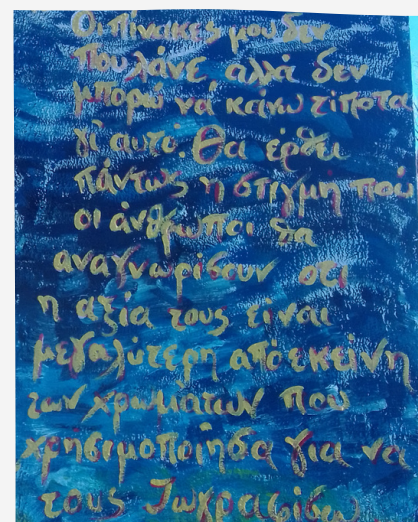 Οι πίνακες μου δεν
πουλάνε αλλά δεν
μπορώ να κάνω τίποτα
γι αυτό. Θα έρθει
πάντως η στιγμή που
οι άνθρωποι θα
αναγνωρίσουν οτι
η αξία τους είναι
μεγαλύτερη από εκείνη
των χρωμάτων που
χρησιμοποίησα για να
τους ζωγραφίσω